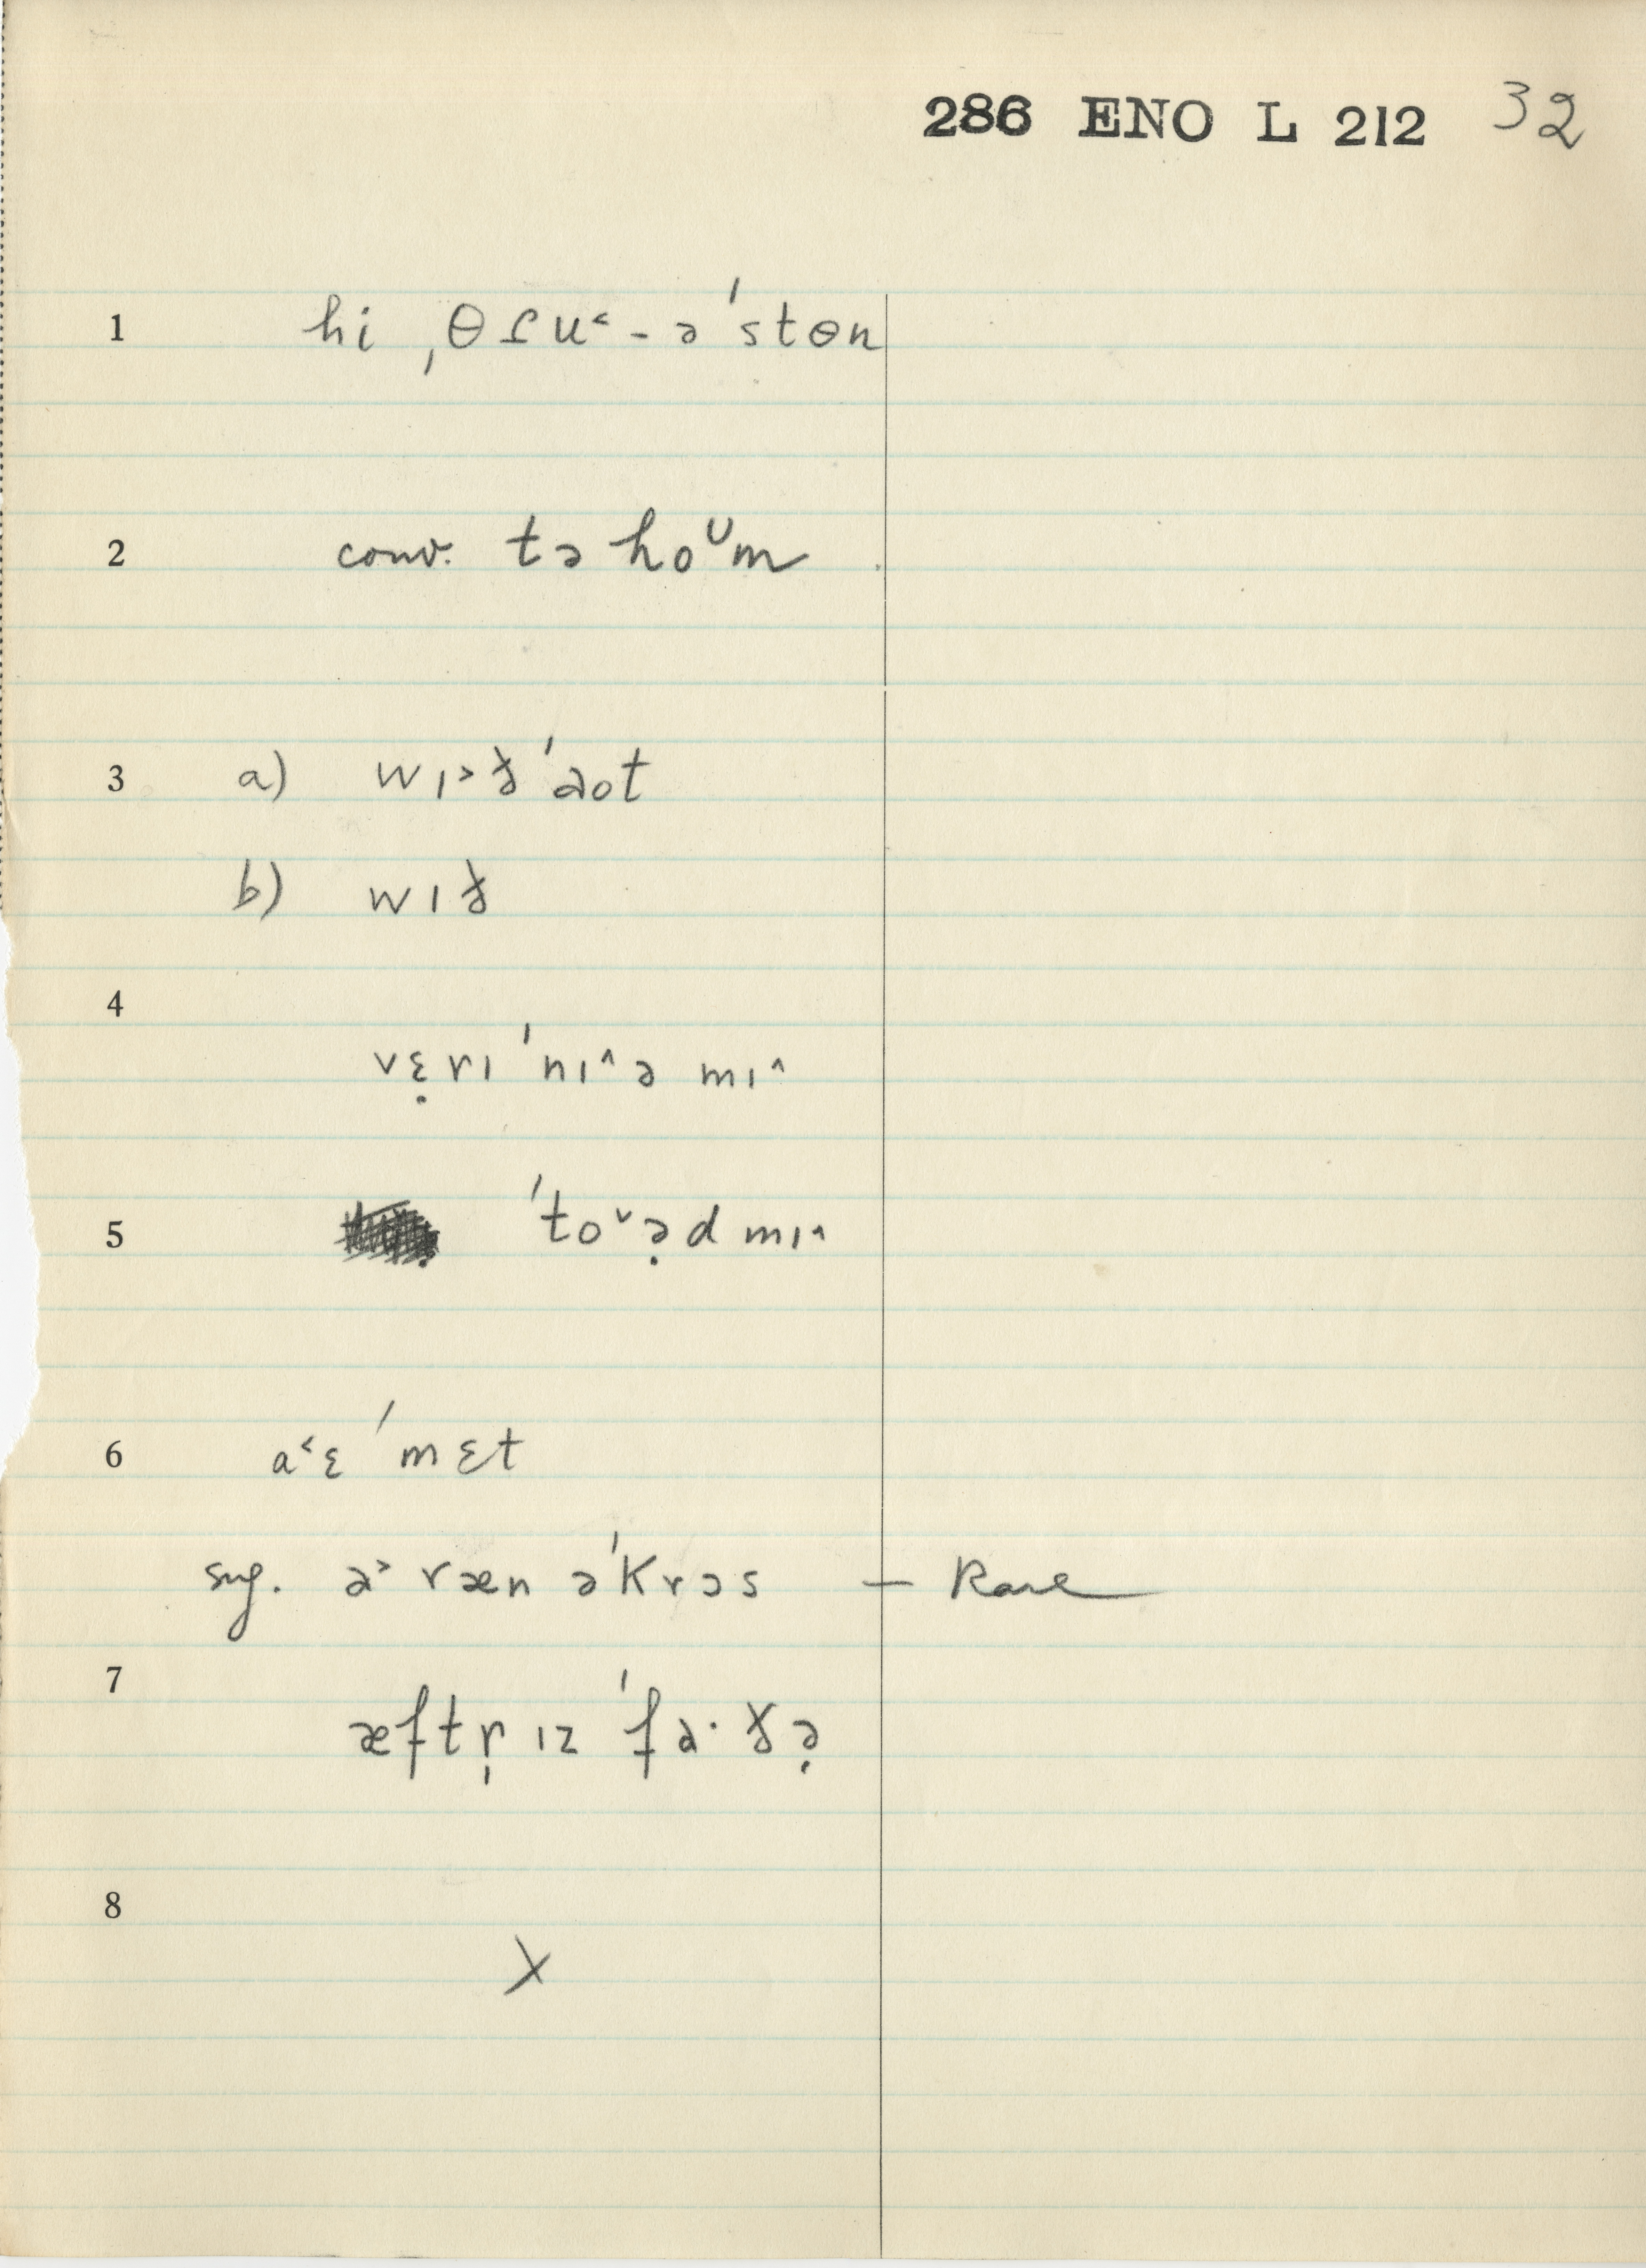 286 ENO L 212 32
1 hi ˌθɾu˂ - ə ˈstɵn
2 conv. tə hoᴗm
3 a) wɪ˃ð ˈaot
b) wɪð
4
vɛ̣rɪ ˈnɪ˄ə mɪ˄
5 ˈto˅ə̣d mɪ˄
6 a˂ɛ ˈmɛt
sug. a˃ ræn əˈkrɔs — Rare
7
æftr̩ ɪz ˈfa·ðə̣
8
X